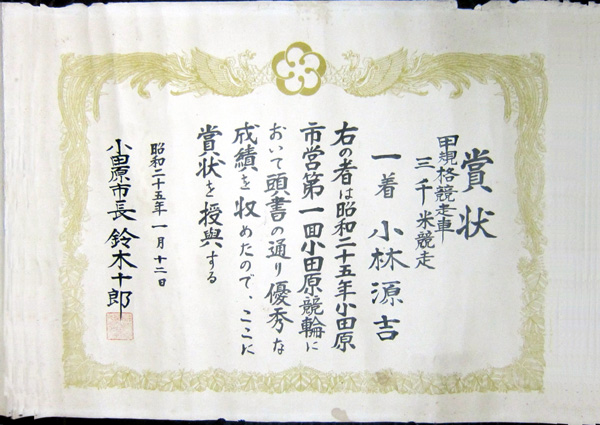 賞状
甲規格競走車
三千米競走
一着 小林源吉
右の者は昭和二十五年小田原
市営第一回小田原競輪に
おいて頭書の通り優秀な
成績を収めたので、ここに
賞状を授與する
昭和二十五年一月十二日
小田原市長 鈴木十郎